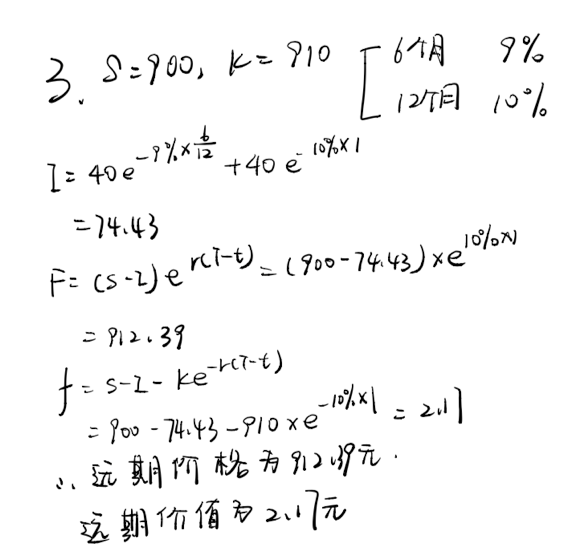 3. S=900, K=910 [ 6个月 9%
12个月 10%
I=40e^{-9%×6/12}+40e^{-10%×1}
=74.43
F=(S-I)e^{r(T-t)}=(900-74.43)×e^{10%×1}
=912.39
f=S-I-Ke^{-r(T-t)}
=900-74.43-910×e^{-10%×1}=2.17
∴远期价格为912.39元.
远期价值为2.17元